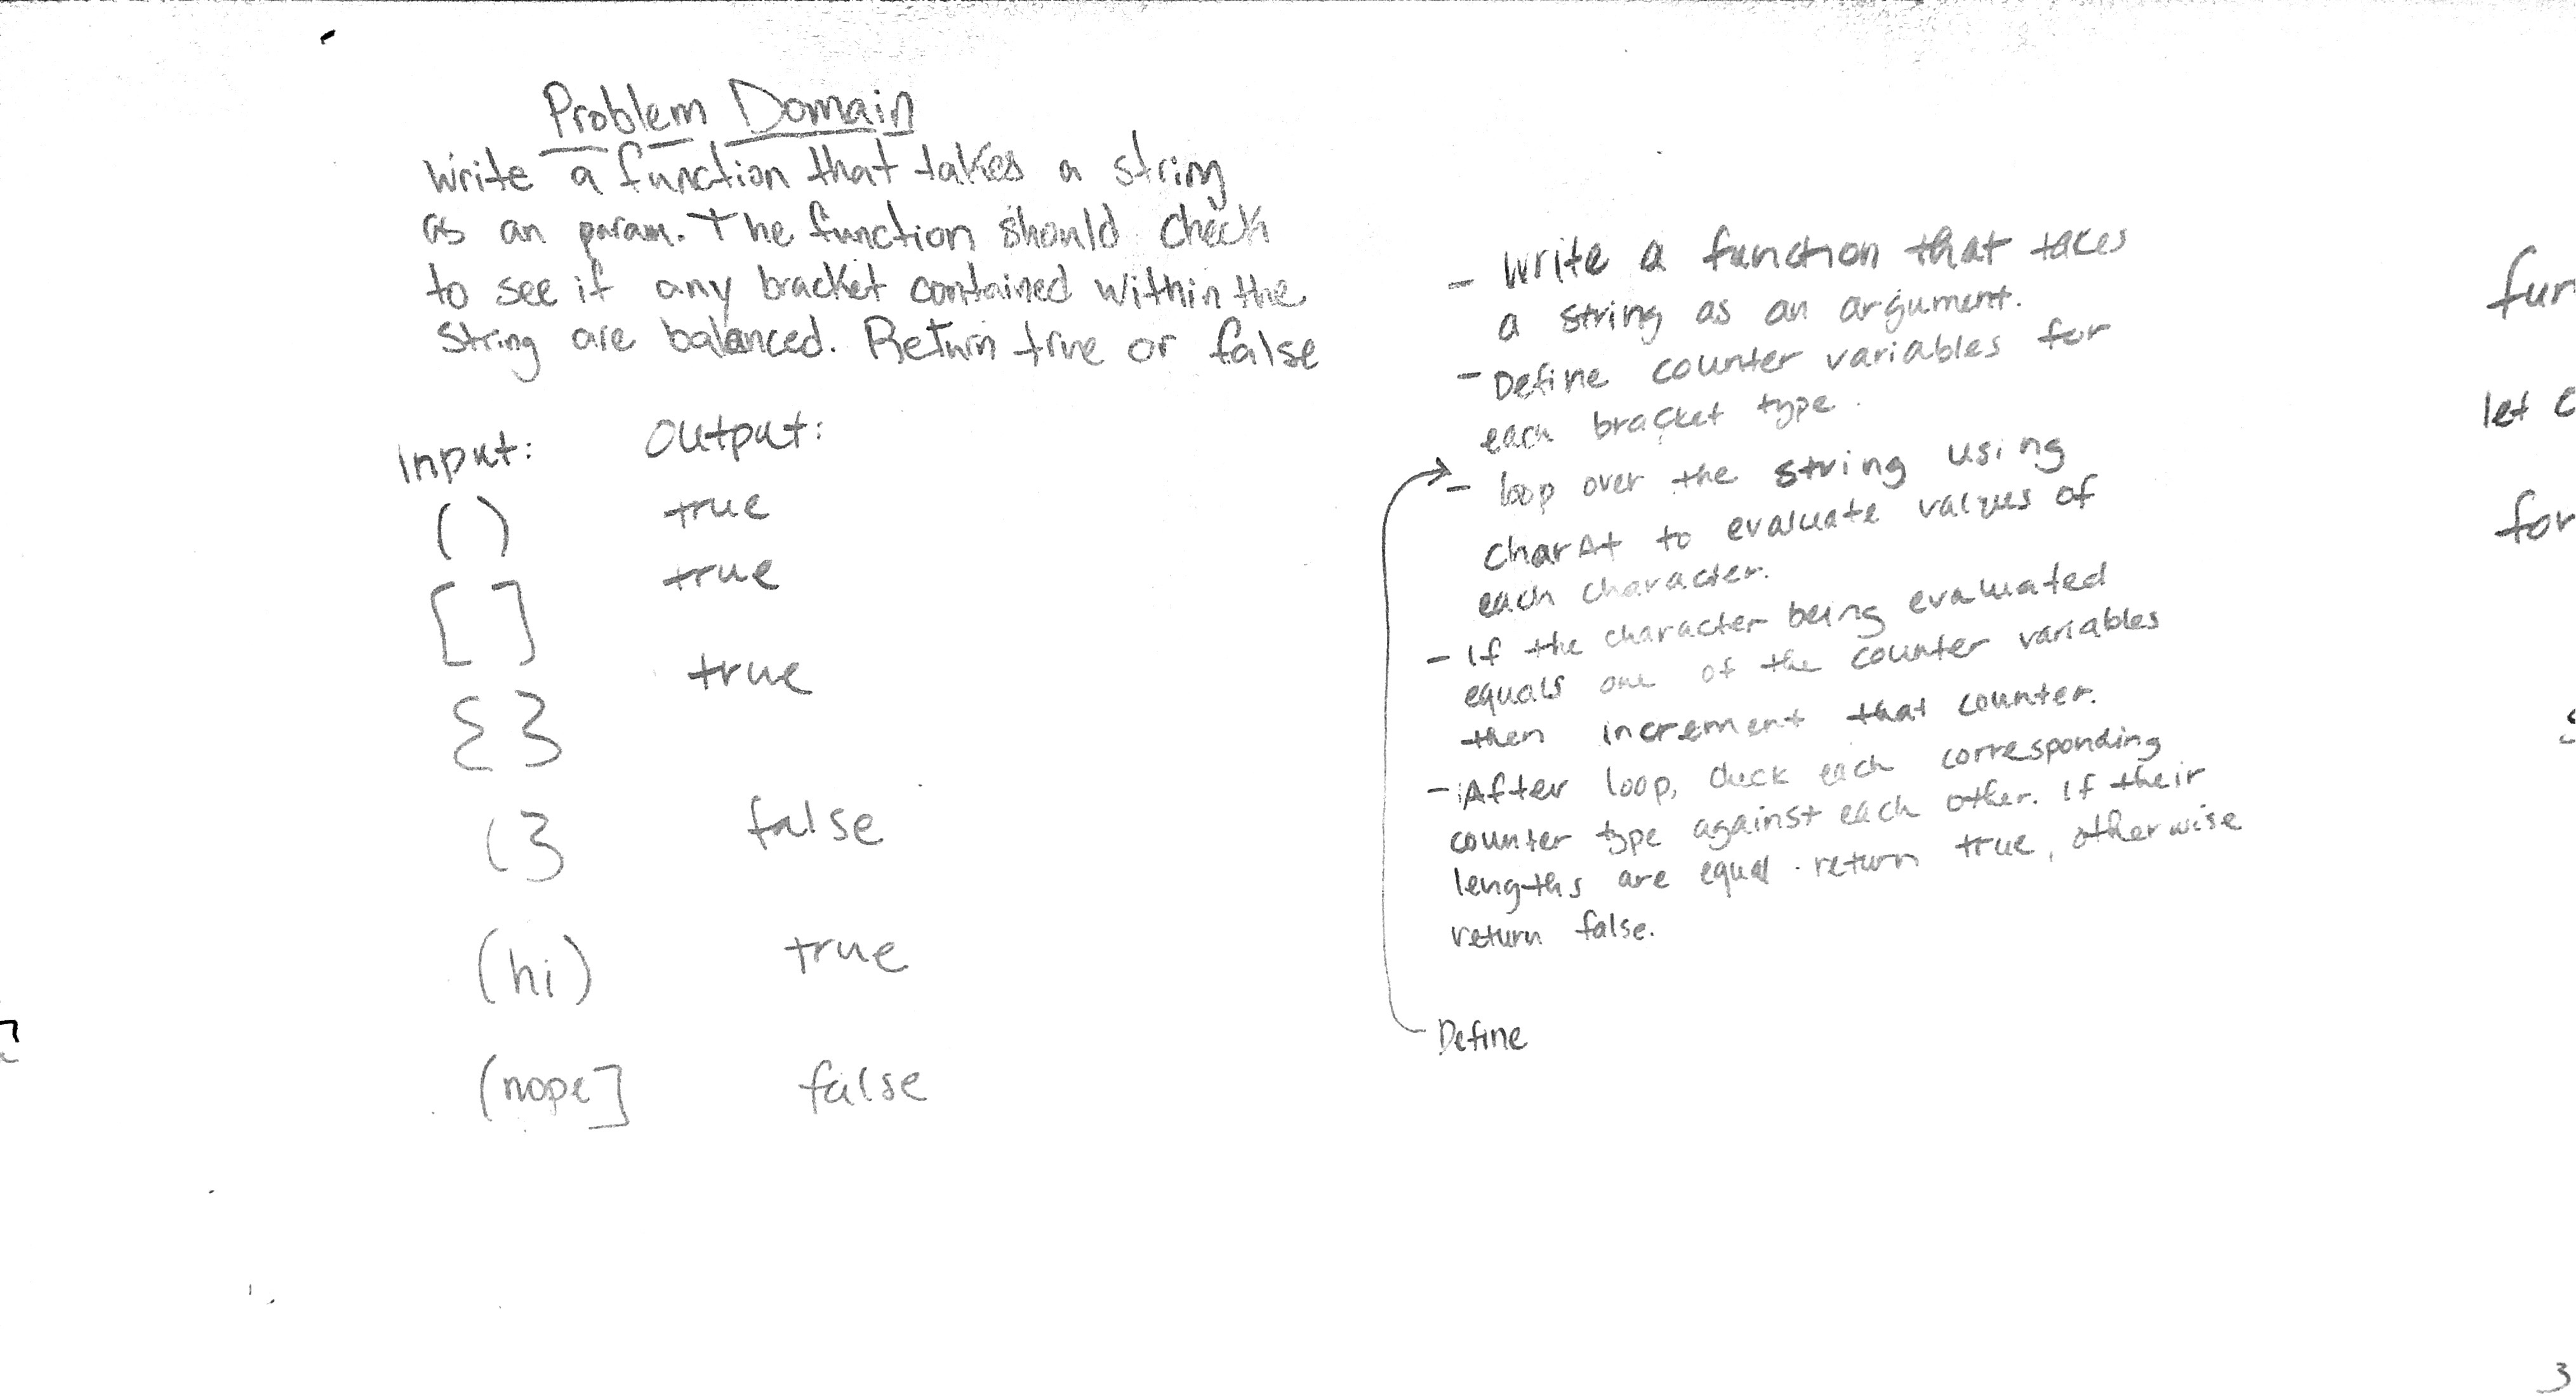 Problem Domain
Write a function that takes a string
as an param. The function should check
to see if any bracket contained within the
string are balanced. Return true or false
Input: Output:
( ) true
[ ] true
{ } true
( } false
(hi) true
(nope] false
- Write a function that takes
a string as an argument.
- Define counter variables for
each bracket type.
- loop over the string using
charAt to evaluate values of
each character.
- If the character being evaluated
equals one of the counter variables
then increment that counter.
- After loop, check each corresponding
counter type against each other. If their
lengths are equal. return true, otherwise
return false.
Define
fun
let
for
3